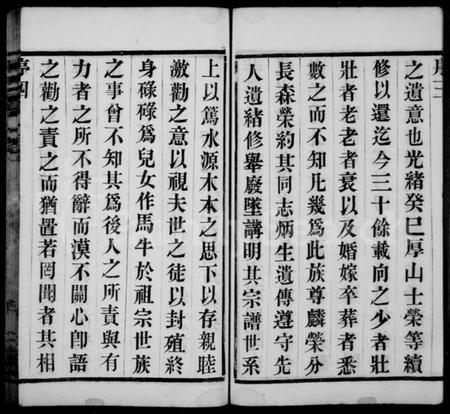 之遺意也光緒癸巳厚山士榮等續
修以還迄今三十餘載向之少者壯
壯者老老者衰以及婚嫁卒葬者悉
數之而不知凡幾爲此族尊麟榮分
長森榮約其同志炳生遺傳遵守先
人遺緒修舉廢墜講明其宗譜世系
上以篤水源木本之思下以存親睦
激勸之意以視夫世之徒以封殖終
身碌碌爲兒女作馬牛於祖宗世族
之事曾不知其爲後人之所責與有
力者之所不得辭而漠不關心卽語
之勸之責之而猶置若罔聞者其相
序四